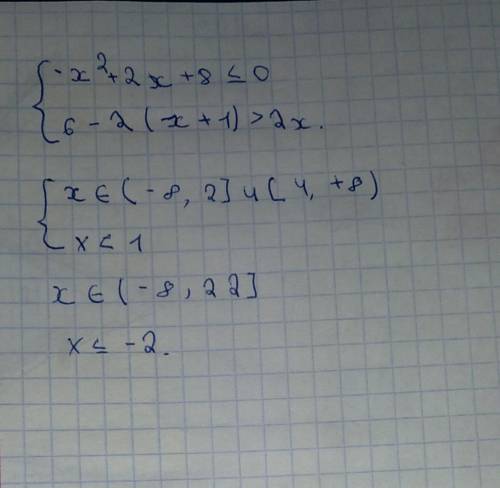 { -x²+2x+8 ≤ 0
{ 6-2(x+1)>2x.
{ x ∈ (-8, 2] u [4, +8)
{ x < 1
x ∈ (-8, 22]
x ≤ -2.